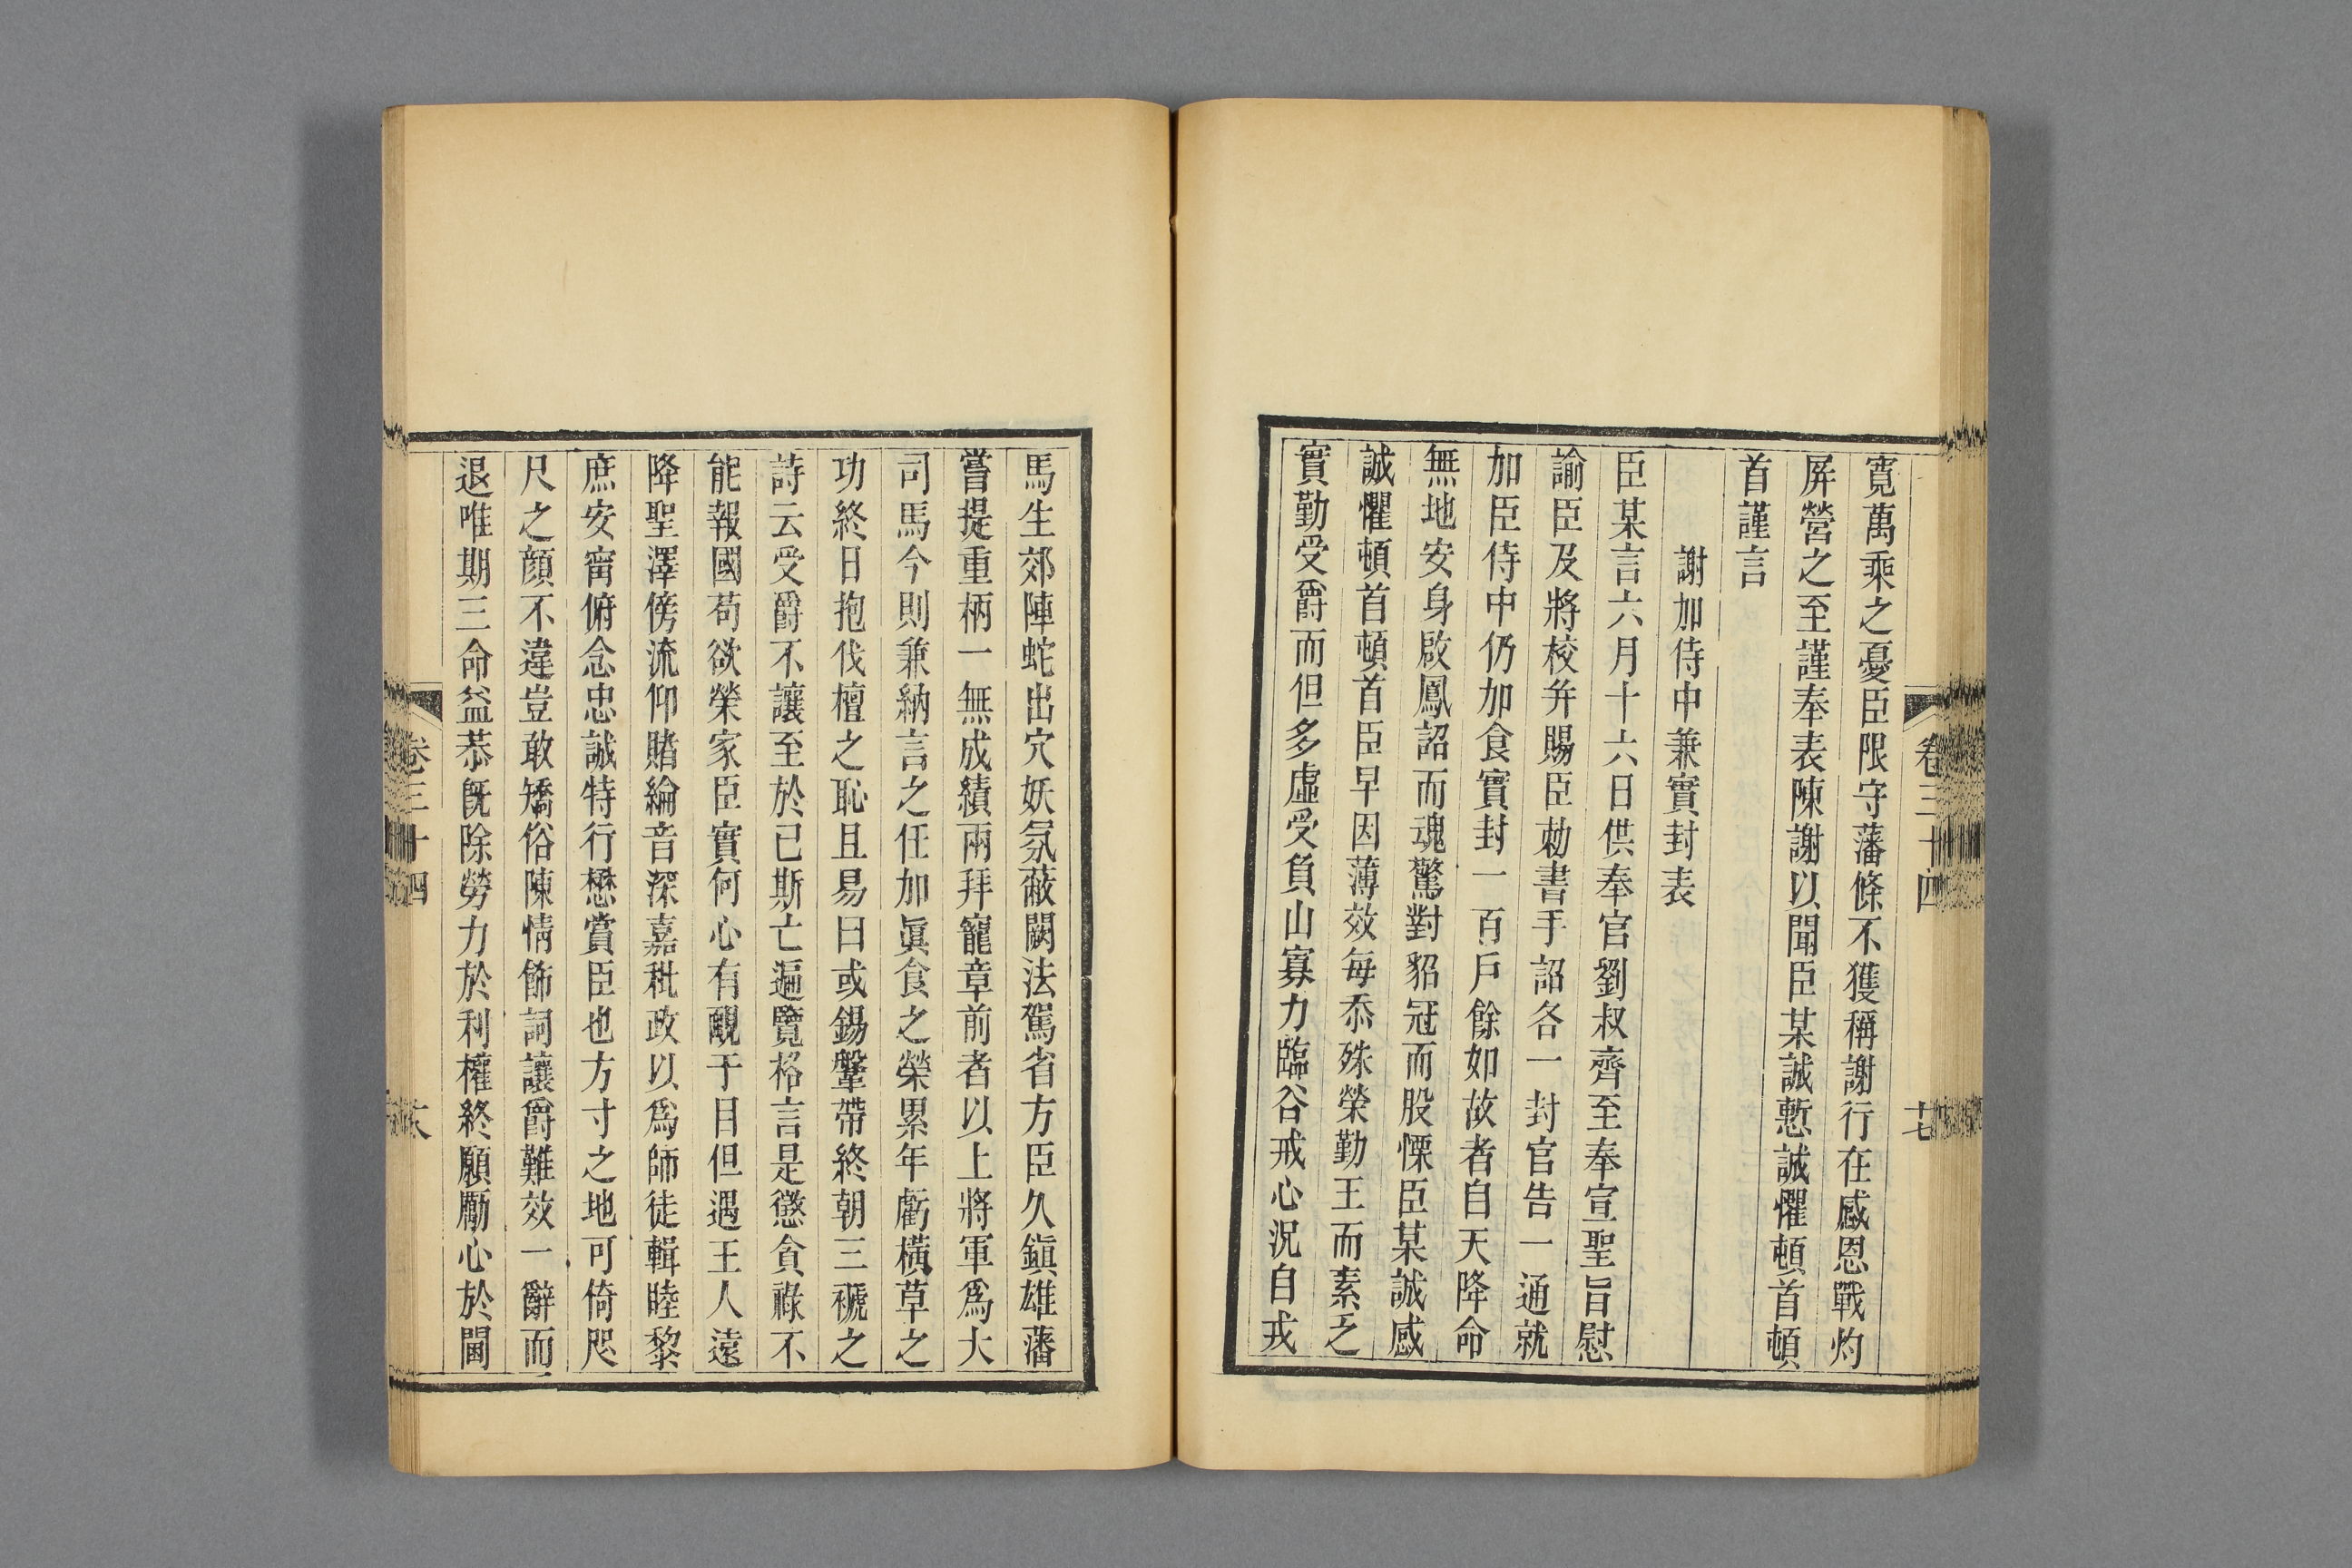 卷三十四
十七
寬萬乘之憂臣限守藩條不獲稱謝行在感恩戰灼
屏營之至謹奉表陳謝以聞臣某誠慙誠懼頓首頓
首謹言
謝加侍中兼實封表
臣某言六月十六日供奉官劉叔齊至奉宣聖旨慰
諭臣及將校并賜臣勅書手詔各一封官告一通就
加臣侍中仍加食實封一百戶餘如故者自天降命
無地安身啟鳳詔而魂驚對貂冠而股慄臣某誠感
誠懼頓首頓首臣早因薄效每忝殊榮勤王而素乏
實勤受爵而但多虛受負山寡力臨谷戒心況自戎
馬生郊陣蛇出穴妖氛蔽闕法駕省方臣久鎭雄藩
嘗提重柄一無成績兩拜寵章前者以上將軍爲大
司馬今則兼納言之任加眞食之榮累年虧橫草之
功終日抱伐檀之恥且易曰或錫鞶帶終朝三褫之
詩云受爵不讓至於已斯亡遍覽格言是懲貪祿不
能報國苟欲榮家臣實何心有靦于目但遇王人遠
降聖澤傍流仰睹綸音深嘉秕政以爲師徒輯睦黎
庶安甯俯念忠誠特行懋賞臣也方寸之地可倚咫
尺之顏不違豈敢矯俗陳情飾詞讓爵難效一辭而
退唯期三命益恭旣除勞力於利權終願勵心於閫
卷三十四